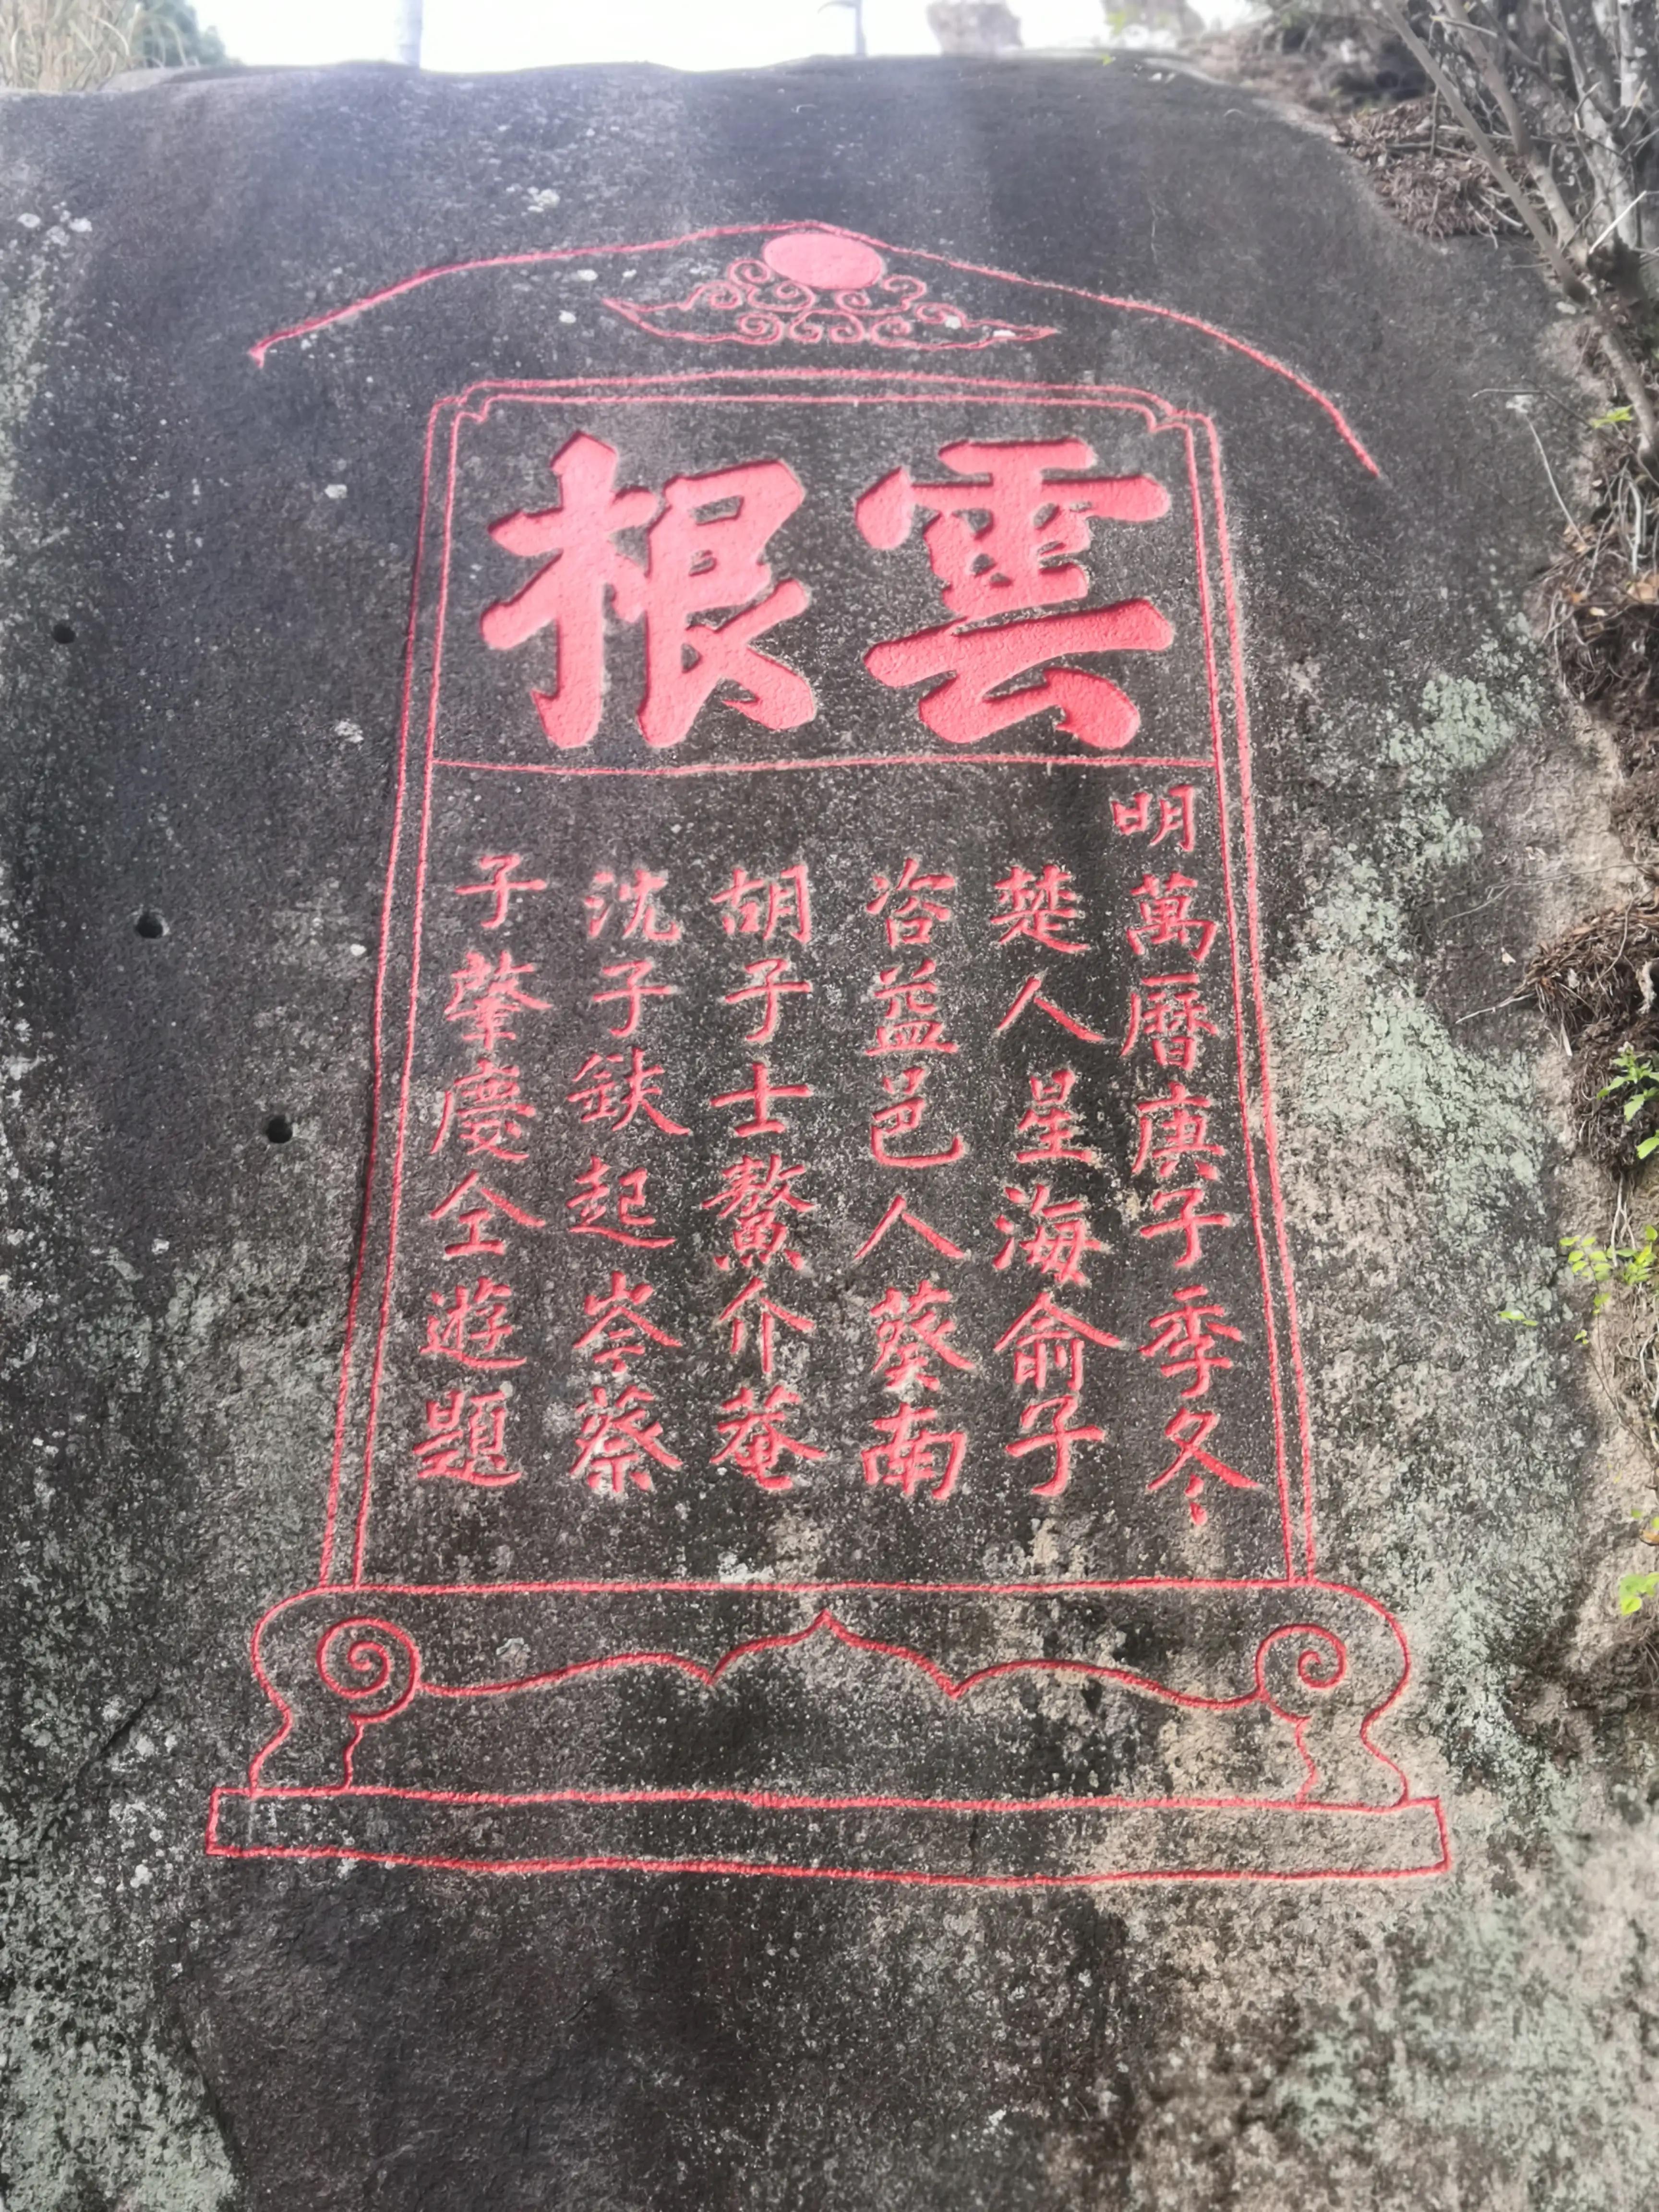 雲根
明萬曆庚子季冬
楚人星海俞子
咨益邑人葵南
胡子士鰲介菴
沈子鈇起岑蔡
子肇慶仝遊題